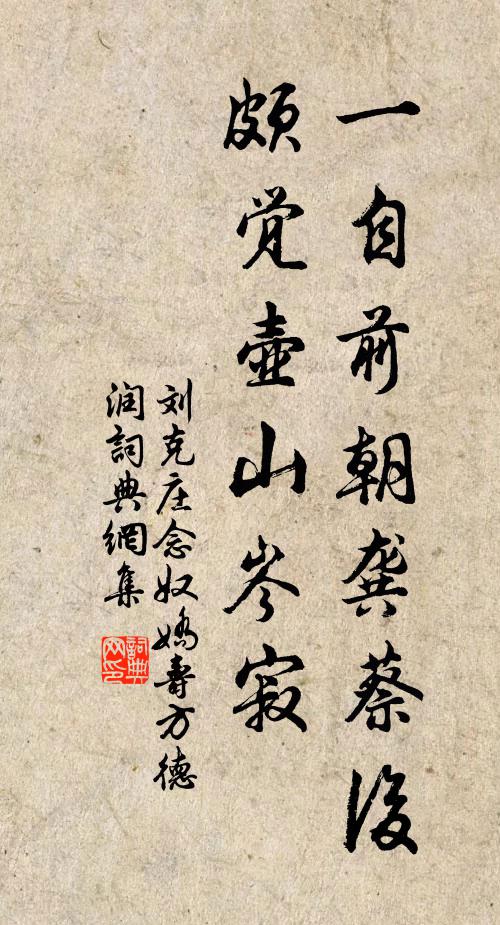 一自前朝龚蔡後
颇觉壶山岑寂
刘克庄念奴娇寿方德
润词典网集
词典网印